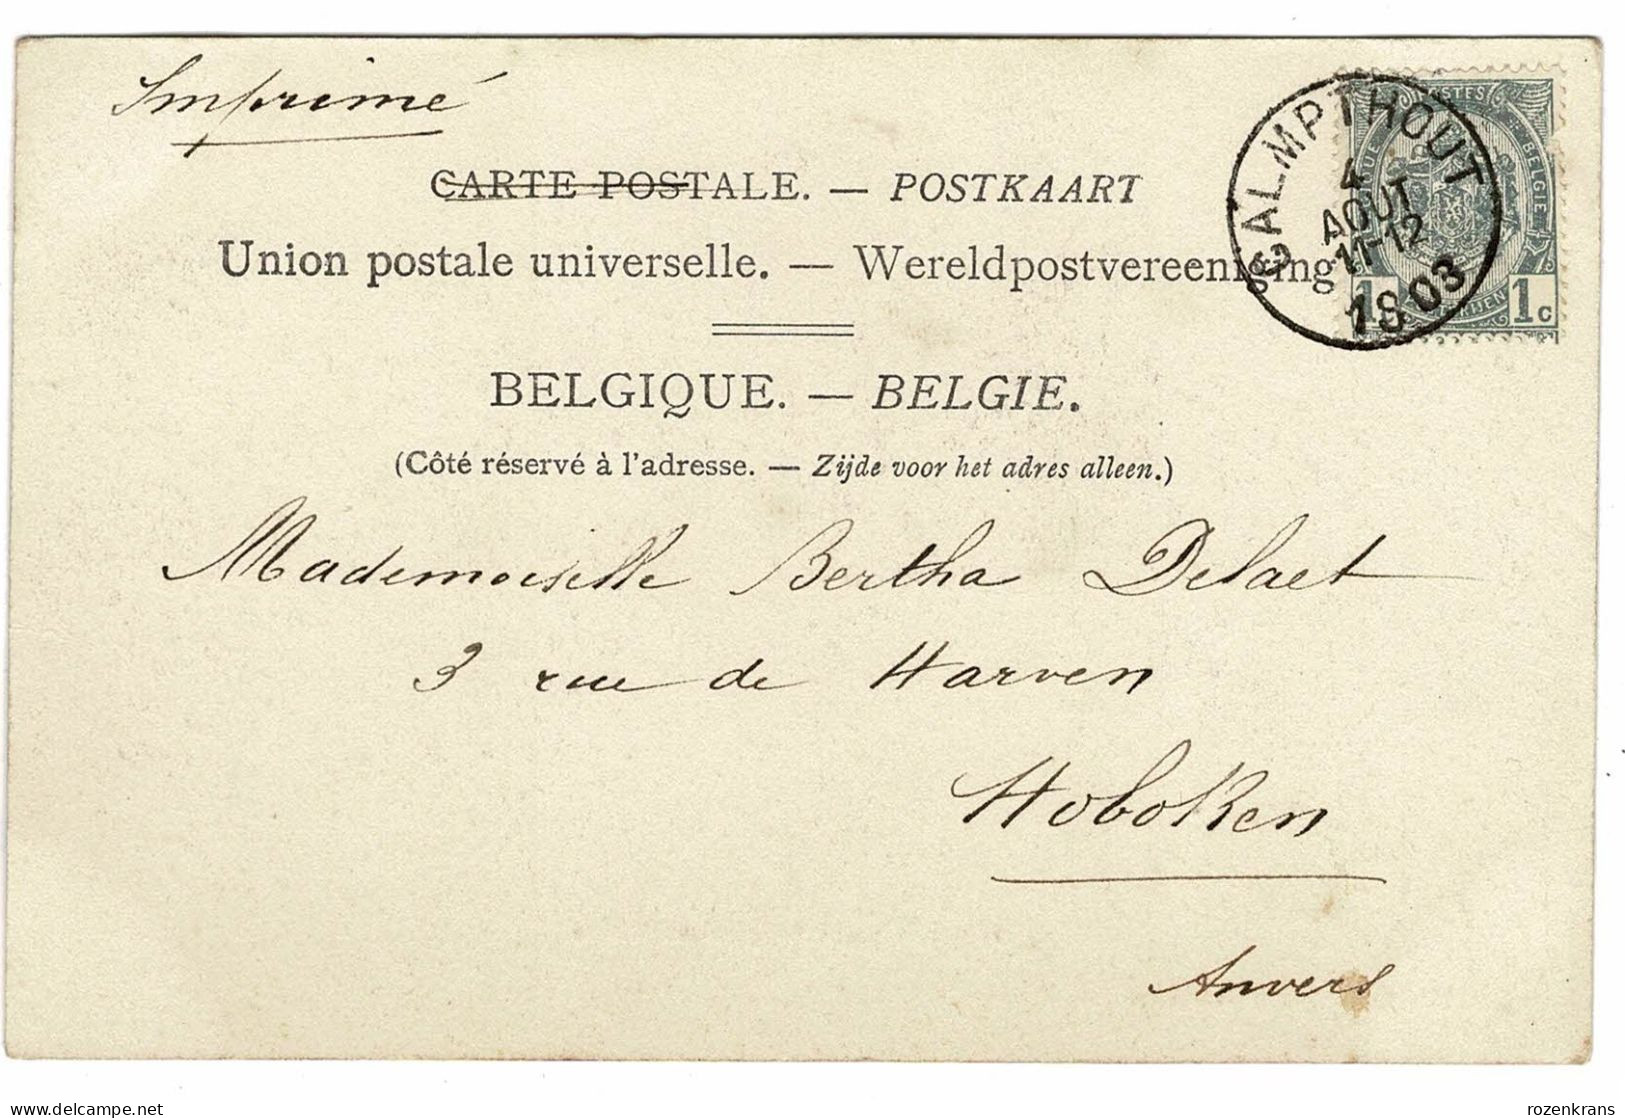 Imprimé
CARTE POSTALE. — POSTKAART
Union postale universelle. — Wereldpostvereeniging
BELGIQUE. — BELGIE.
(Côté réservé à l'adresse. — Zijde voor het adres alleen.)
CALMPTHOUT
4
AOUT
11-12
1903
BELGIE
1 1c
Mademoiselle Bertha Delaet
3 rue de Harven
Hoboken
Anvers
delcampe.net
rozenkrans